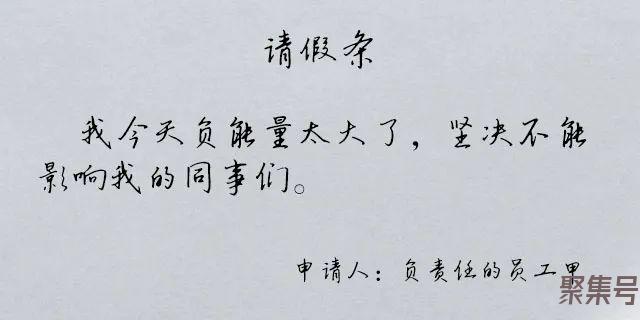 请假条
我今天负能量太大了，坚决不能
影响我的同事们。
申请人：负责任的员工甲
聚集号